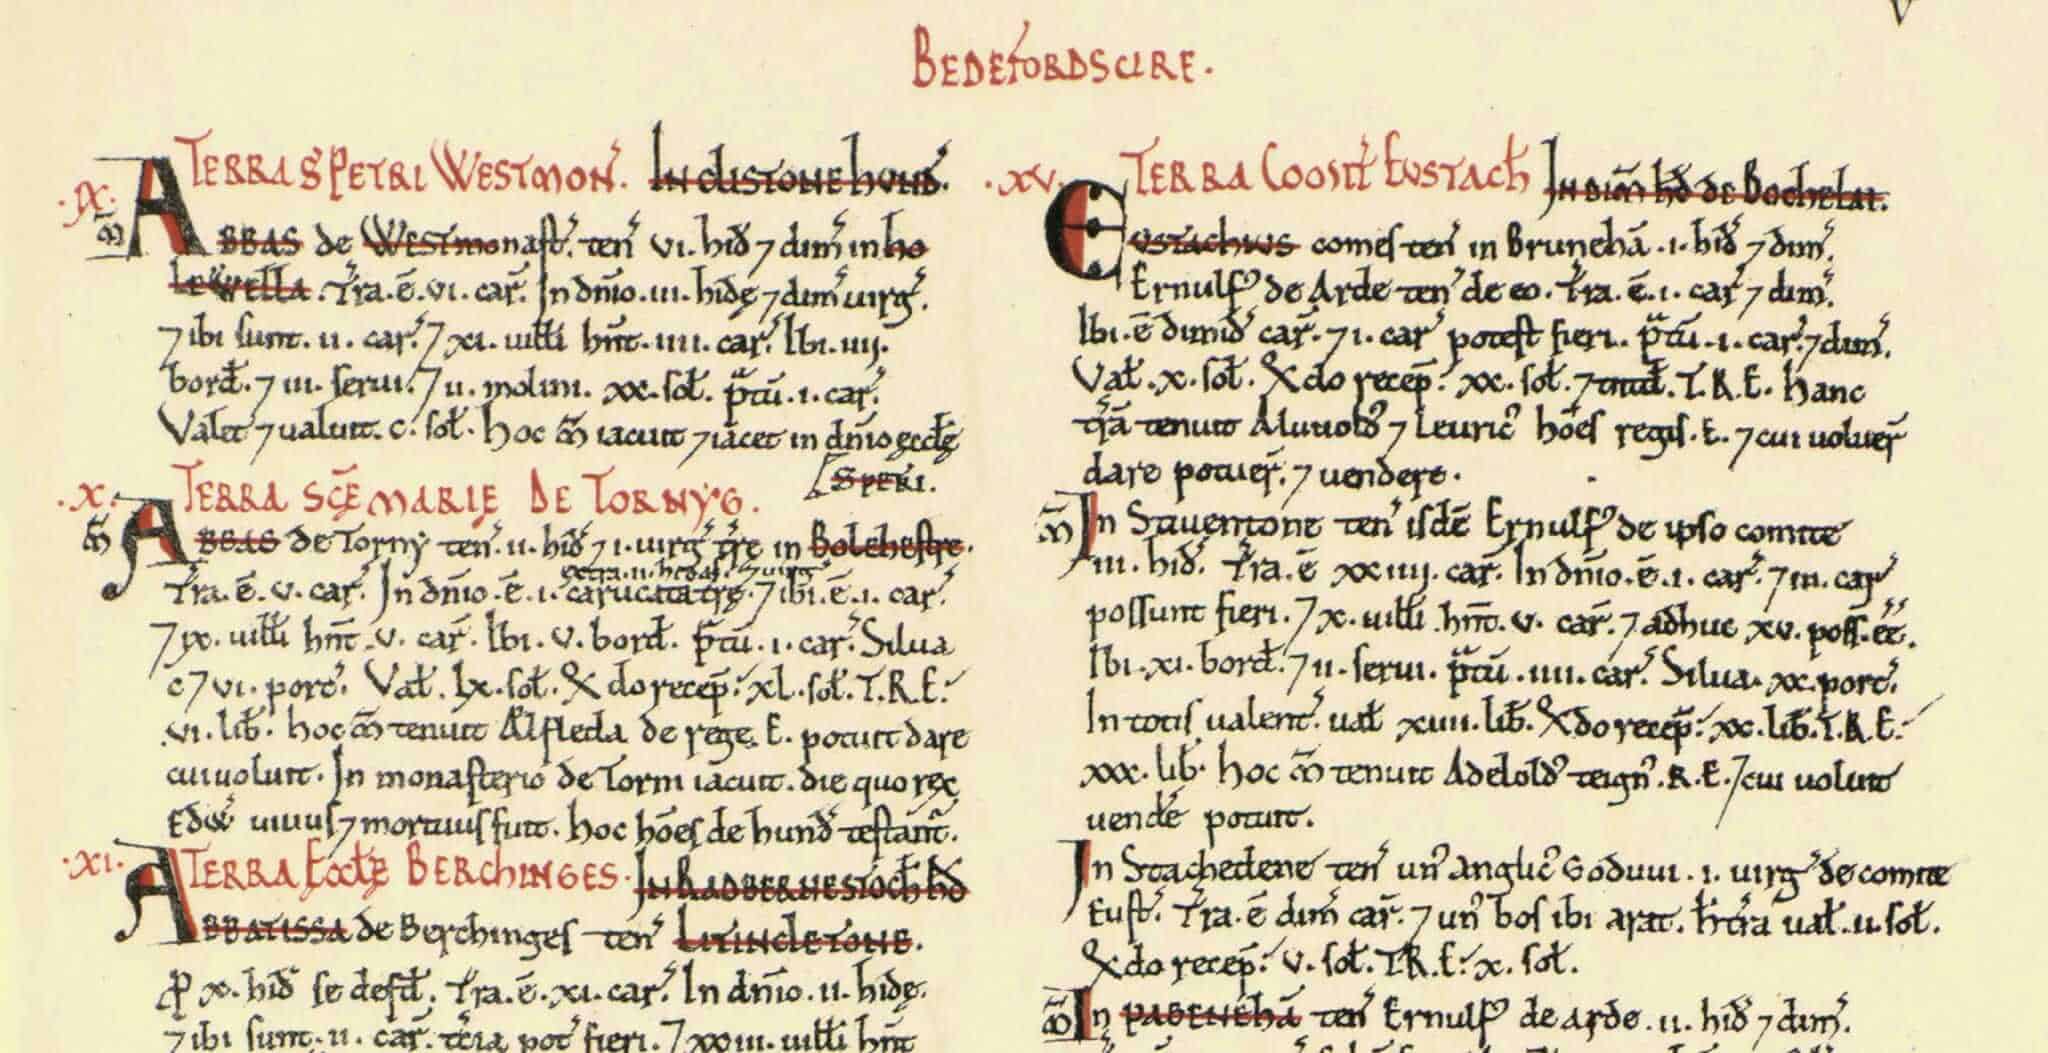 BEDEFORDSCIRE.
V
.IX. TERRA S̄ PETRI WESTMON̄. IN CLISTONE HUND̄.
m̄ ABBAS de Westmonast̄. ten̄ .vi. hid̄ ⁊ dim̄ in ho
lewella. Tr̄a.ē.vi. car̄. In dn̄io .iii. hidę ⁊ dim̄ uirḡ.
⁊ ibi sunt .ii. car̄. ⁊ xi. uilli hn̄t .iiii. car̄. Ibi .iiij.
bord̄. ⁊ iii. serui. ⁊ ii. molini. xx. sol̄. p̄tū .i. car̄.
Valet ⁊ ualuit. c. sol̄. hoc m̄ iacuit ⁊ iacet in dn̄io eccłę
[S PETRI.
.X. TERRA SC̄E MARIE DE TORNYG.
m̄ ABBAS de Torny ten̄ .ii. hid̄ ⁊ i. uirḡ tr̄e in Bolehestre.
extra .ii. hidas ⁊ i. uirḡ
Tr̄a.ē.v. car̄. In dn̄io.ē.i. carucata tr̄ę. ⁊ ibi.ē.i. car̄.
⁊ ix. uilli hn̄t .v. car̄. Ibi .v. bord̄. p̄tū .i. car̄. Silua
c ⁊ vi. porc̄. Val̄ .lx. sol̄. & do recep̄: xl. sol̄. T.R.E:
.vi. lib̄. hoc m̄ tenuit Alfleda de rege E. potuit dare
cui uoluit. In monasterio de Torni iacuit. die quo rex
Edw̄ uiuus ⁊ mortuus fuit. hoc hōes de hund̄ testant̄.
.XI. TERRA ECCLĘ BERCHINGES. IN RADBERNESTOCH HD̄
ABBATISSA de Berchinges ten̄ LITINCLETONE.
ꝓ x. hid̄ se defd̄. Tr̄a.ē.xi. car̄. In dn̄io .ii. hidę.
⁊ ibi sunt .ii. car̄. tc̄ia pot̄ fieri. ⁊ xxiii. uilli hn̄t
.XV. TERRA COMIT̄ EUSTACH̄ IN DIM̄ HD̄ DE BOCHELAI.
EUSTACHIUS comes ten̄ in Brunehā .i. hid̄ ⁊ dim̄.
Ernulf⁹ de Arde ten̄ de eo. Tr̄a.ē.i. car̄ ⁊ dim̄.
Ibi.ē dimid̄ car̄. ⁊ i. car̄ potest fieri. p̄tū .i. car̄. ⁊ dim̄.
Val̄ .x. sol̄. & do recep̄: xx. sol̄. ⁊ tntd̄. T.R.E. hanc
tr̄ā tenuit Aluuold⁹ ⁊ Leuric⁹ hōes regis .E. ⁊ cui uoluer̄
dare potuer̄. ⁊ uendere.
m̄ In Stauentone ten̄ isdē Ernulf⁹ de ipso comite
.iii. hid̄. Tr̄a.ē xxiiij. car̄. In dn̄io.ē.i. car̄. ⁊ iii. car̄
possunt fieri. ⁊ x. uilli hn̄t .v. car̄. ⁊ adhuc xv. poss̄.ēē.
Ibi .xi. bord̄. ⁊ ii. serui. p̄tū .iiii. car̄. Silua. xx. porc̄.
In totis ualent̄. ual̄ xviii. lib̄. & do recep̄: xx. lib̄. T.R.E:
xxx. lib̄. hoc m̄ tenuit Adelold⁹ teign⁹ .R.E. ⁊ cui uoluit
uend̄e potuit.
In Stachedene ten̄ un⁹ anglic⁹ Goduui .i. uirḡ de comite
Eust̄. Tr̄a.ē dim̄ car̄. ⁊ un⁹ bos ibi arat. h̄ tr̄a ual̄ .ii. sol̄.
& do recep̄: v. sol̄. T.R.E: x. sol̄.
m̄ In PABENEHĀ ten̄ Ernulf⁹ de arde .ii. hid̄ ⁊ dim̄.